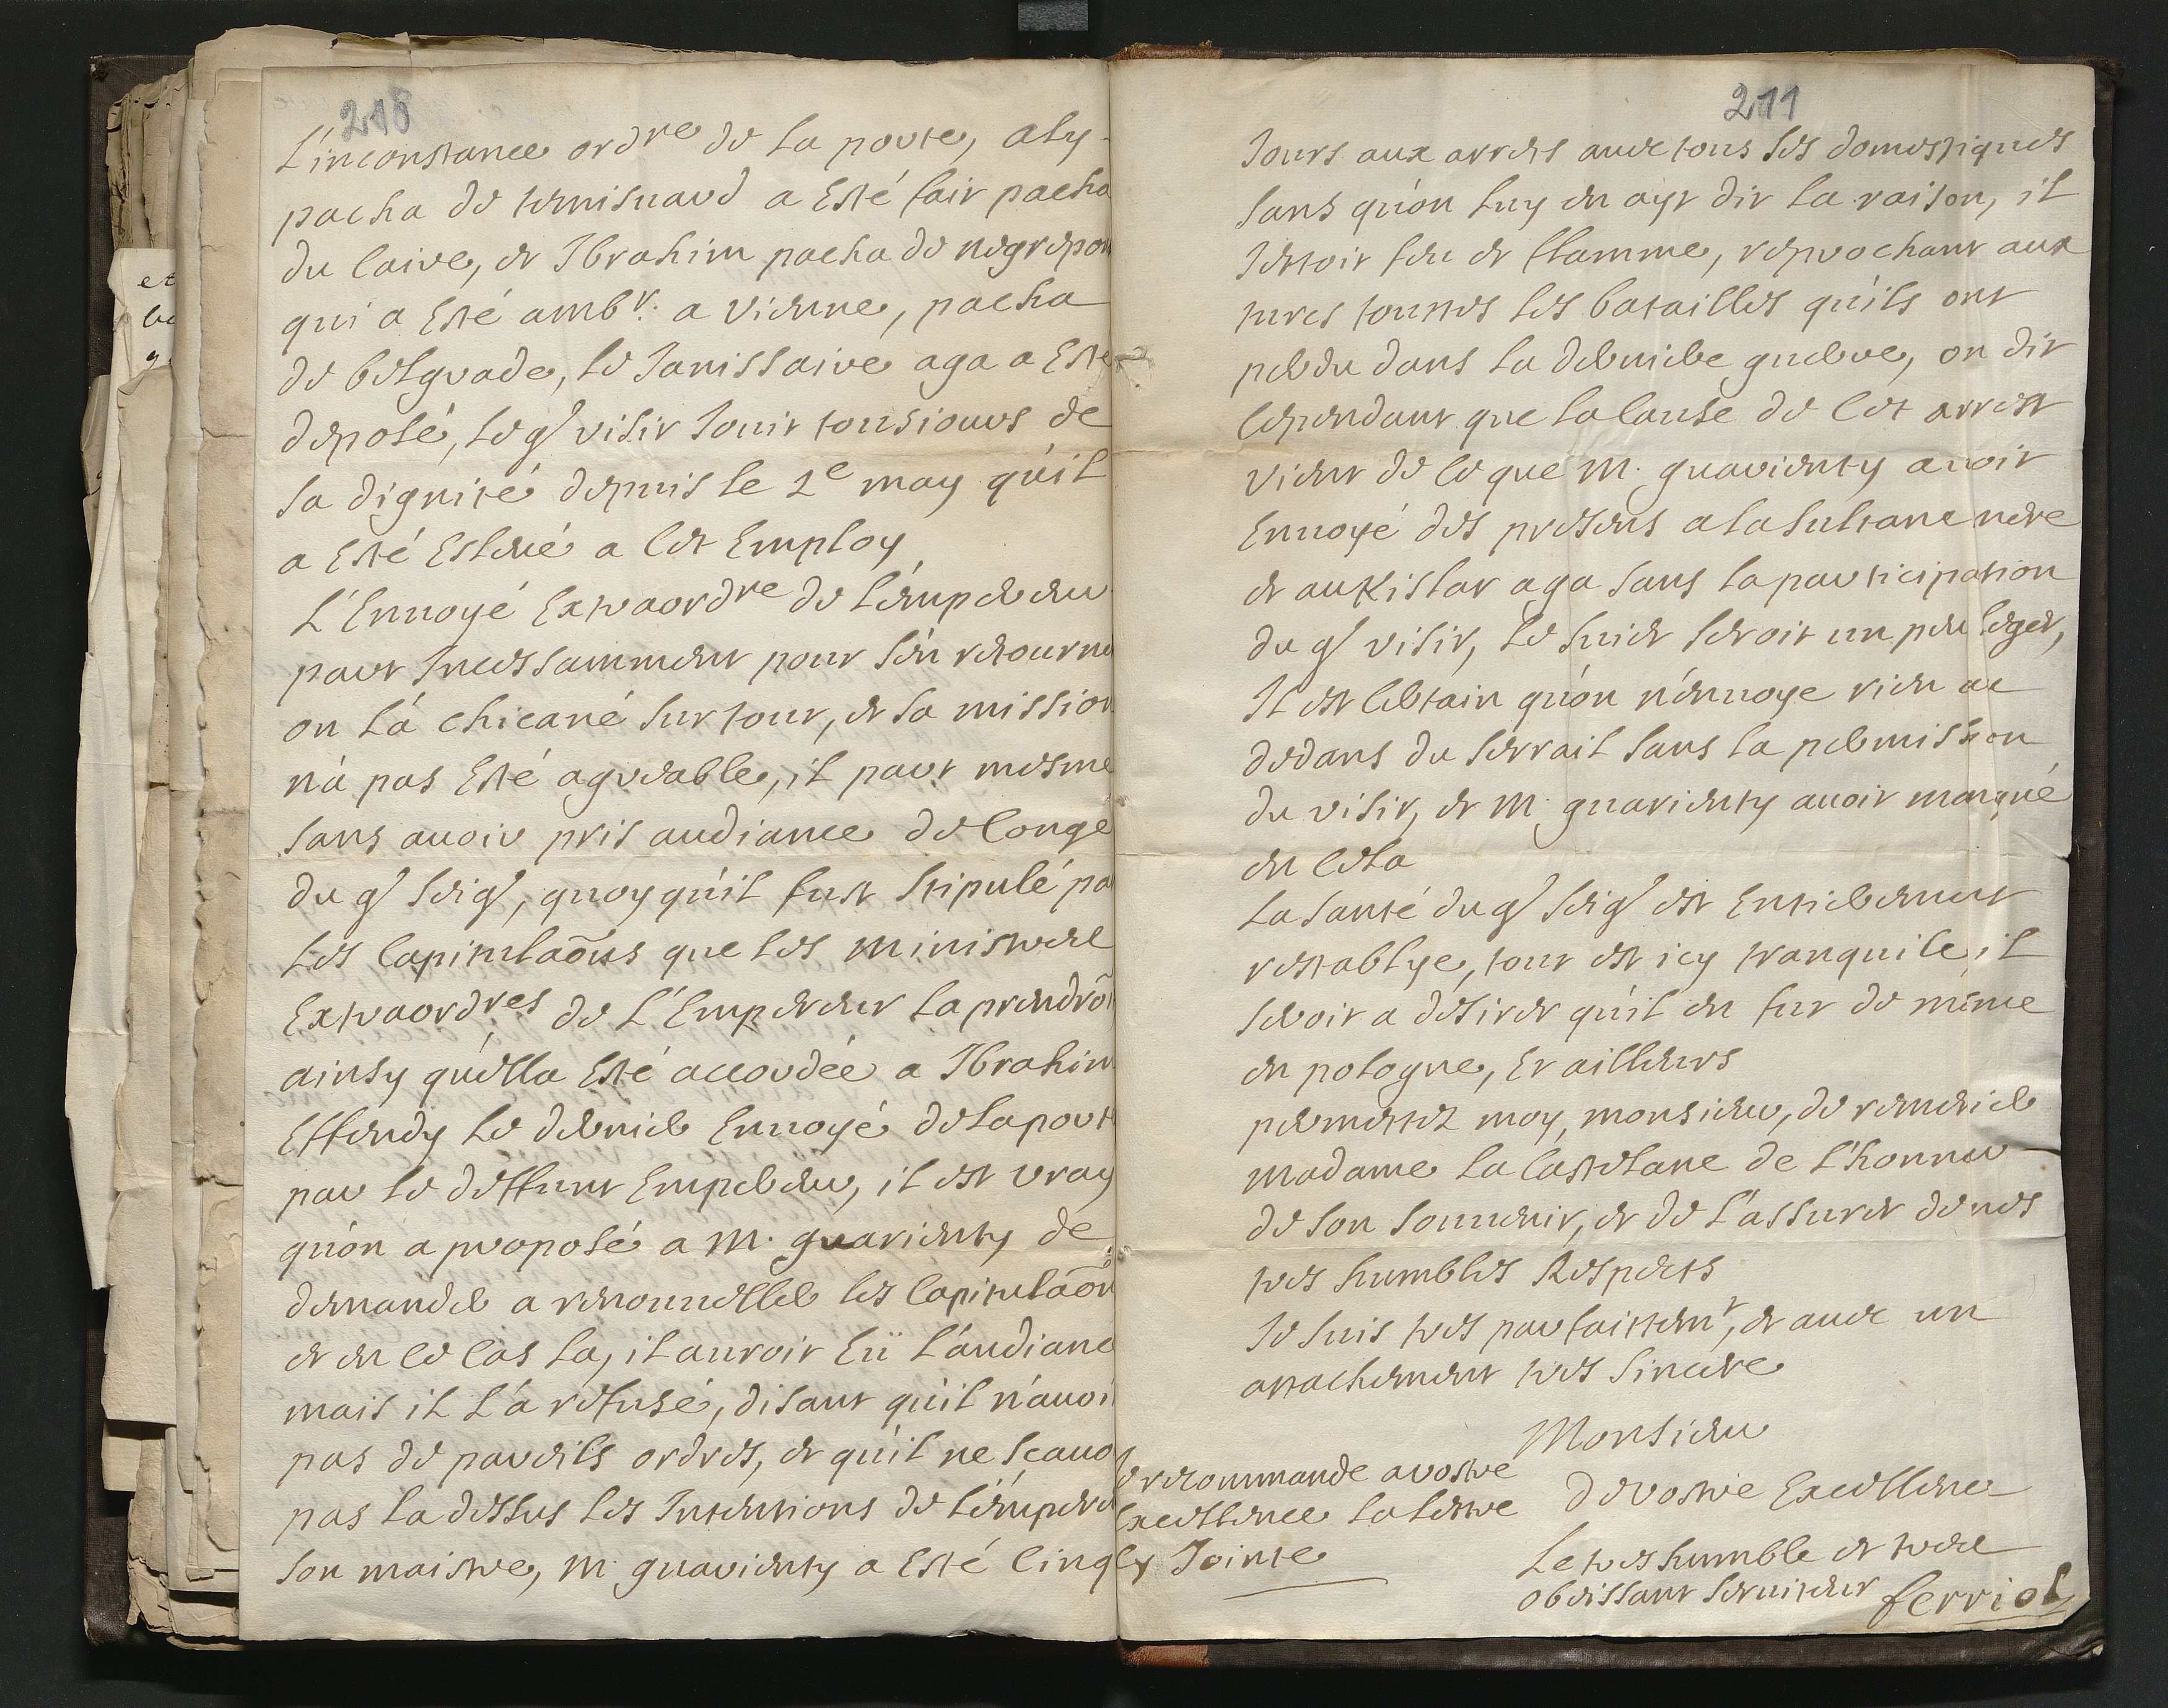 218
L'inconstance ordre de la porte, aly
pacha de temisuard a Esté fait pacha
du Caire, et Ibrahim pacha de negrepon
qui a Esté amb.r a Vienne, pacha
de belgrade, le Janissaire aga a Esté
deposé, le g.d visir Jouit tousiours de
sa dignité depuis le 2e may qu'il
a Esté Esleué a Cet Employ
L'Enuoyé Extraordre de l'émpereur
part Incessamment pour s'én retourne
on l'á chicané sur tout, et sa mission
n'á pas Esté agreable, il part mesme
sans auoir pris audiance de Congé
du g.d seig.r, quoy qu'il fust stipulé pa
les Capitulaõns que les ministres
Extraordres de L'Empereur la prendrõ
ainsy qu'élla Esté accordée a Ibrahim
Effendy le dernier Enuoyé de la port
par le deffunt Empereur, il est vray
qu'ón a proposé a M. guarienty de
demander a renouueller les Capitulaõn
et en ce Cas la, il auroit Eü l'áudiance
mais il l'á refusé, disant qu'il n'áuoi
pas de pareils ordres, et qu'il ne sçauo
pas la dessus les Intentions de l'émpere
son maistre, M guarienty a Esté Cinq
et
be
211
Jours aux arrets auec tous ses domestiques
sans qu'ón luy en ayt dit la raison, il
Jettoit feu et flamme, reprochant aux
turcs touttes les batailles qu'ils ont
perdu dans la derniere guerre, on dit
Cependant que la Cause de Cet arrest
vient de ce que M. guarienty auoit
Enuoyé des presens a la sultane mere
et au Kislar aga sans la participation
du g.d visir, le suiet seroit un peu leger,
Il est Certain qu'ón n'énuoye rien au
dedans du serrail sans la permission
du visir, et M. guarienty auoit manqué
en Cela
La santé du g.d seig.r est Entierement
restablye, tout est icy tranquile, il
seroit a désirer qu'il en fut de même
en pologne, Et ailleurs
permettez moy, monsieur, de remercier
madame la Castelane de l'honneur
de son souuenir, et de l'assurer de mes
tres humbles Respects
Je suis tres parfaittemt, et auec un
attachement tres sincere
Monsieur
De vostre Excellence
Le tres humble et tres
obeissant seruiteur ferriol
Je recommande a vostre
Excellence la lettre
Cy Jointe